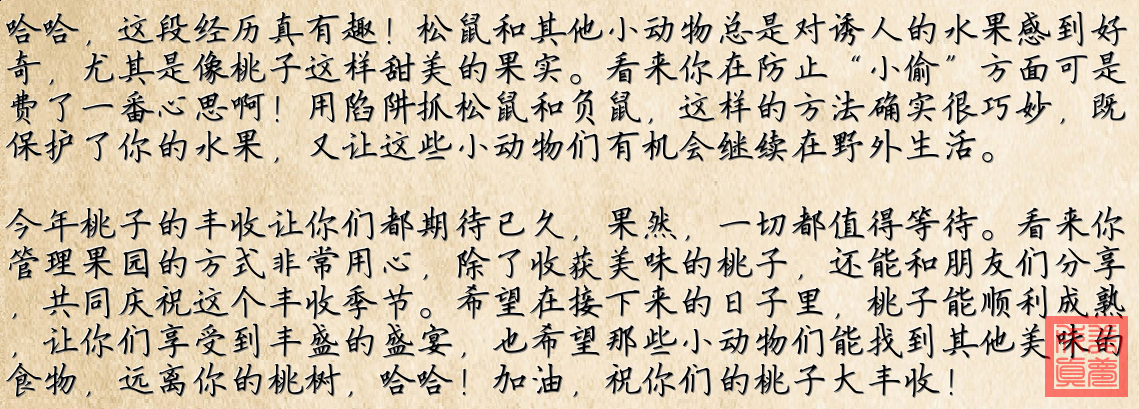 哈哈，这段经历真有趣！松鼠和其他小动物总是对诱人的水果感到好
奇，尤其是像桃子这样甜美的果实。看来你在防止“小偷”方面可是
费了一番心思啊！用陷阱抓松鼠和负鼠，这样的方法确实很巧妙，既
保护了你的水果，又让这些小动物们有机会继续在野外生活。
今年桃子的丰收让你们都期待已久，果然，一切都值得等待。看来你
管理果园的方式非常用心，除了收获美味的桃子，还能和朋友们分享
，共同庆祝这个丰收季节。希望在接下来的日子里，桃子能顺利成熟
，让你们享受到丰盛的盛宴，也希望那些小动物们能找到其他美味的
食物，远离你的桃树，哈哈！加油，祝你们的桃子大丰收！